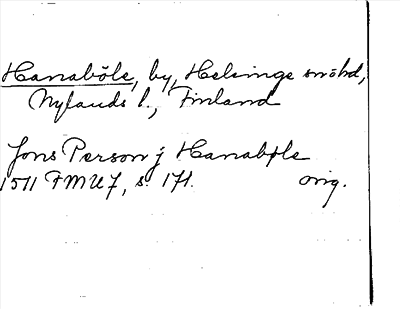 Hanaböle, by, Helsinge snöbd,
Nylands l., Finland
Jons Person j Hanabple
1511 FMU 7, s. 171. orig.